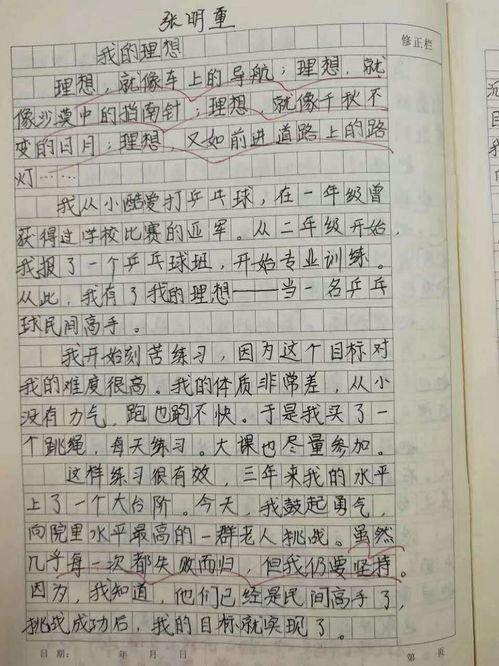 张明重
修正栏
我的理想
理想，就像车上的导航；理想，就
像沙漠中的指南针；理想，就像千秋不
变的日月；理想，又如前进道路上的路
灯……
我从小酷爱打乒乓球，在一年级曾
获得过学校比赛的亚军。从二年级开始，
我报了一个乒乓球班，开始专业训练。
从此，我有了我的理想——当一名乒乓
球民间高手。
我开始刻苦练习，因为这个目标对
我的难度很高。我的体质非常差，从小
没有力气，跑也跑不快。于是我买了一
个跳绳，每天练习。大课也尽量参加。
这样练习很有效，三年来我的水平
上了一个大台阶。今天，我鼓起勇气，
向院里水平最高的一群老人挑战。虽然
几乎每一次都失败而归，但我仍要坚持。
因为，我知道，他们已经是民间高手了，
挑战成功后，我的目标就实现了。
日期： 年 月 日 第 页